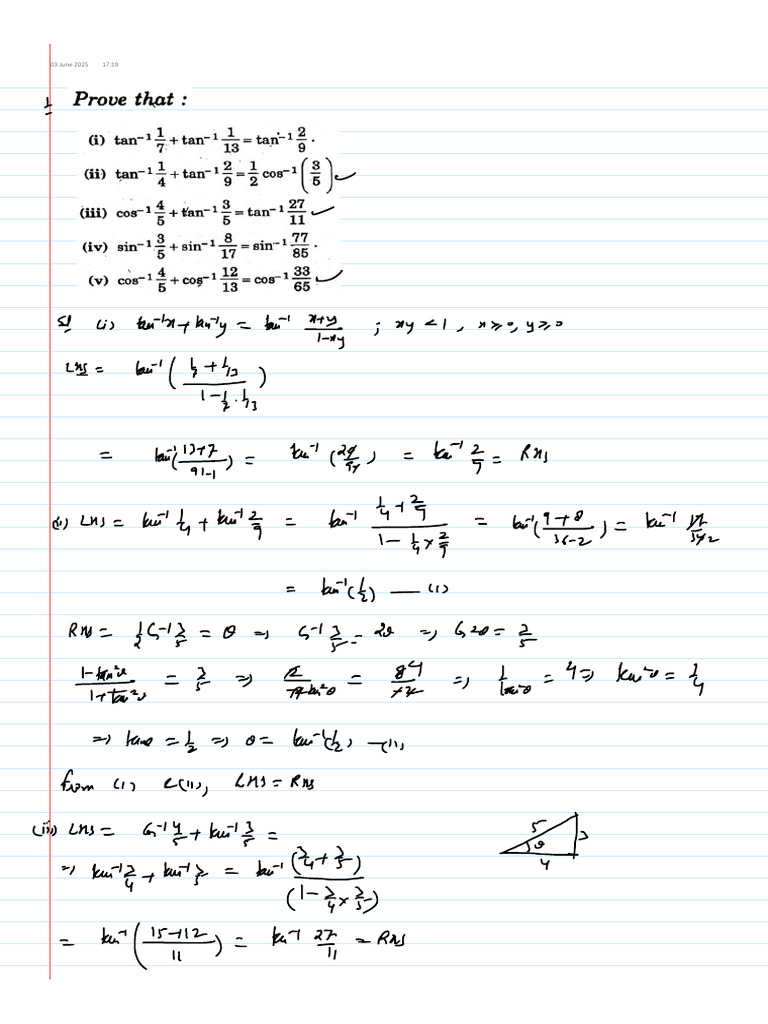 03 June 2025 17:19
1 Prove that :
(i) tan⁻¹ 1/7 + tan⁻¹ 1/13 = tan⁻¹ 2/9 .
(ii) tan⁻¹ 1/4 + tan⁻¹ 2/9 = 1/2 cos⁻¹ (3/5) ✓
(iii) cos⁻¹ 4/5 + tan⁻¹ 3/5 = tan⁻¹ 27/11 ✓
(iv) sin⁻¹ 3/5 + sin⁻¹ 8/17 = sin⁻¹ 77/85 .
(v) cos⁻¹ 4/5 + cos⁻¹ 12/13 = cos⁻¹ 33/65 ✓
Sol (i) tan⁻¹x + tan⁻¹y = tan⁻¹ (x+y)/(1-xy) ; xy < 1 , x ≥ 0, y ≥ 0
LHS = tan⁻¹ ( (1/7 + 1/13) / (1 - 1/7 . 1/13) )
= tan⁻¹((13+7)/(91-1)) = tan⁻¹ (20/90) = tan⁻¹ 2/9 = RHS
(ii) LHS = tan⁻¹ 1/4 + tan⁻¹ 2/9 = tan⁻¹ (1/4 + 2/9)/(1 - 1/4 × 2/9) = tan⁻¹((9+8)/(36-2)) = tan⁻¹ 17/34 2
= tan⁻¹(1/2) — (i)
RHS = 1/2 cos⁻¹ 3/5 = θ ⇒ cos⁻¹ 3/5 = 2θ ⇒ cos 2θ = 3/5
(1-tan²θ)/(1+tan²θ) = 3/5 ⇒ 2/(-2tan²θ) = 8 4/(-2) ⇒ 1/tan²θ = 4 ⇒ tan²θ = 1/4
⇒ tanθ = 1/2 ⇒ θ = tan⁻¹(1/2) —(ii)
from (i) & (ii), LHS = RHS
(iii) LHS = cos⁻¹ 4/5 + tan⁻¹ 3/5 =
5 θ 4 3
⇒ tan⁻¹ 3/4 + tan⁻¹ 3/5 = tan⁻¹ (3/4 + 3/5)/(1 - 3/4 × 3/5)
= tan⁻¹ ((15+12)/11) = tan⁻¹ 27/11 = RHS